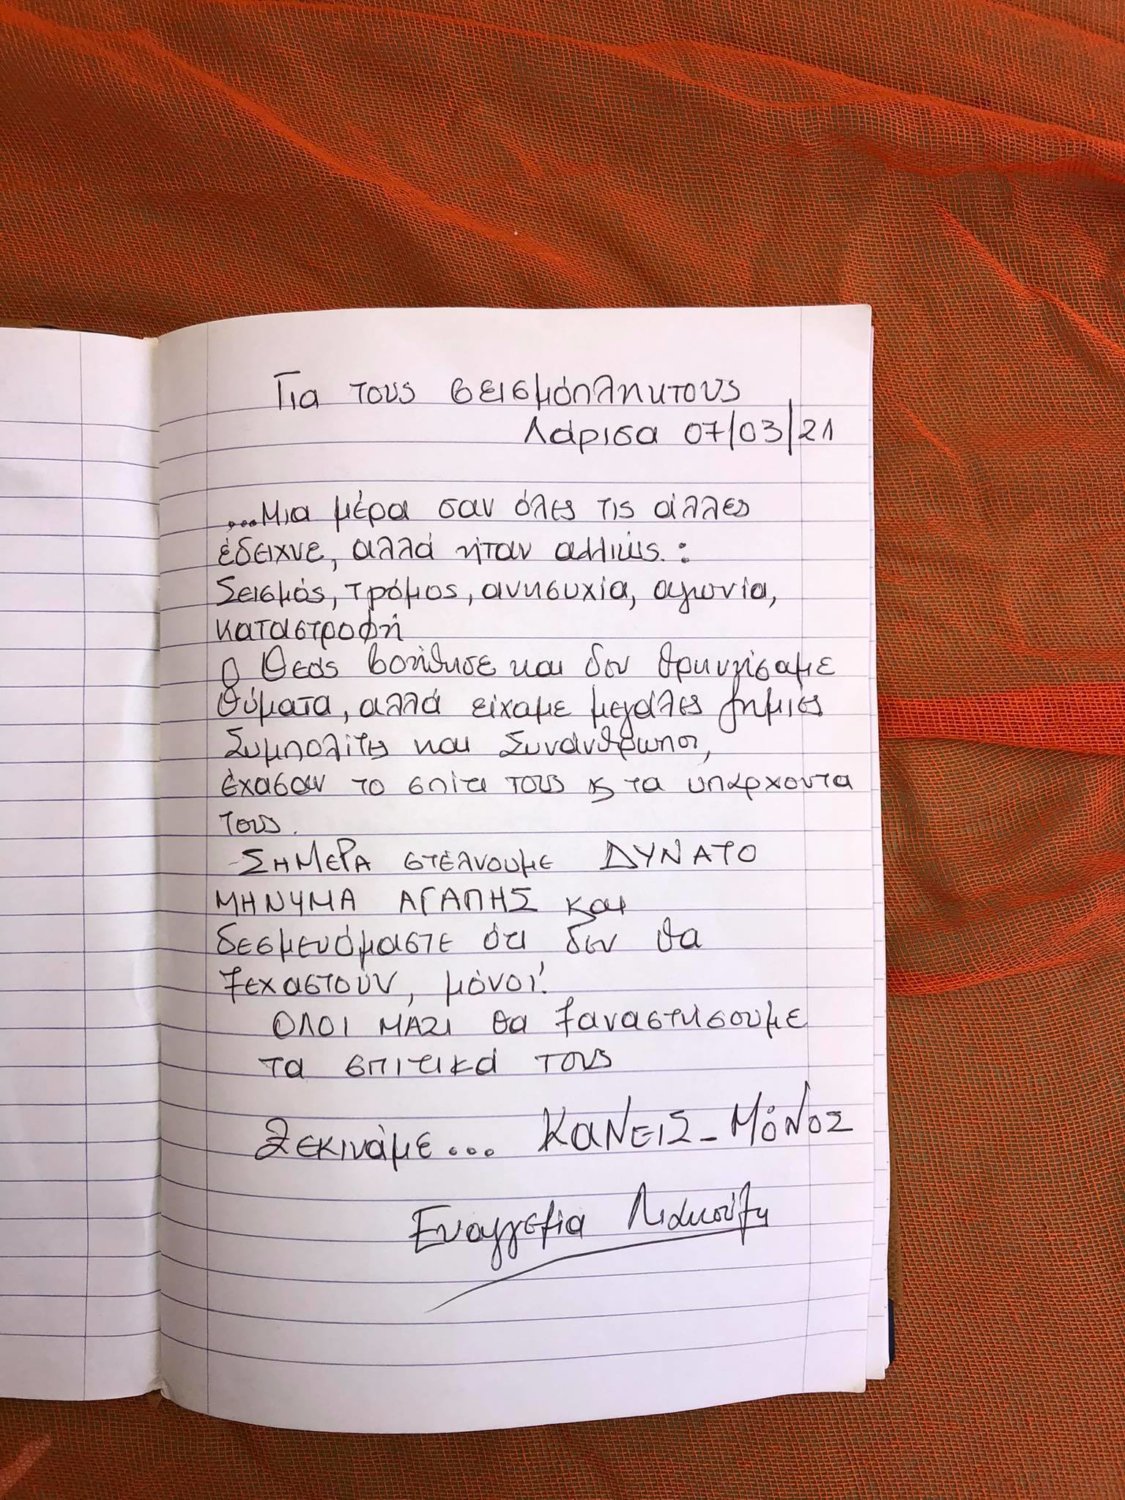 Για τους σεισμόπληκτους
Λάρισα 07/03/21
...Μια μέρα σαν όλες τις άλλες
έδειχνε, αλλά ήταν αλλιώς :
Σεισμός, τρόμος, ανησυχία, αγωνία,
καταστροφή
Ο Θεός βοήθησε και δεν θρηνήσαμε
θύματα, αλλά είχαμε μεγάλες ζημιές
Συμπολίτες και Συνάνθρωποι,
έχασαν το σπίτι τους & τα υπάρχοντα
τους.
ΣΗΜΕΡΑ στέλνουμε ΔΥΝΑΤΟ
ΜΗΝΥΜΑ ΑΓΑΠΗΣ και
δεσμευόμαστε ότι δεν θα
ξεχαστούν, μόνοι!
ΟΛΟΙ ΜΑΖΙ θα ξαναστήσουμε
τα σπιτικά τους
Ξεκινάμε... ΚΑΝΕΙΣ - ΜΌΝΟΣ
Ευαγγελία Λιακούλη